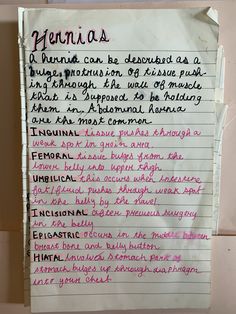 Hernias
A hernia can be described as a
bulge, protrusion of tissue push-
ing through the wall of muscle
that is supposed to be holding
them in. Abdominal hernia
are the most common
INGUINAL tissue pushes through a
weak spot in groin area
FEMORAL tissue bulges from the
lower belly into upper thigh
UMBILICAL this occurs when intestine
fat/fluid pushes through weak spot
in the belly by the navel
INCISIONAL after previous surgery
in the belly
EPIGASTRIC occurs in the middle between
breast bone and belly button
HIATAL involves stomach part of
stomach bulges up through diaphragm
into your chest